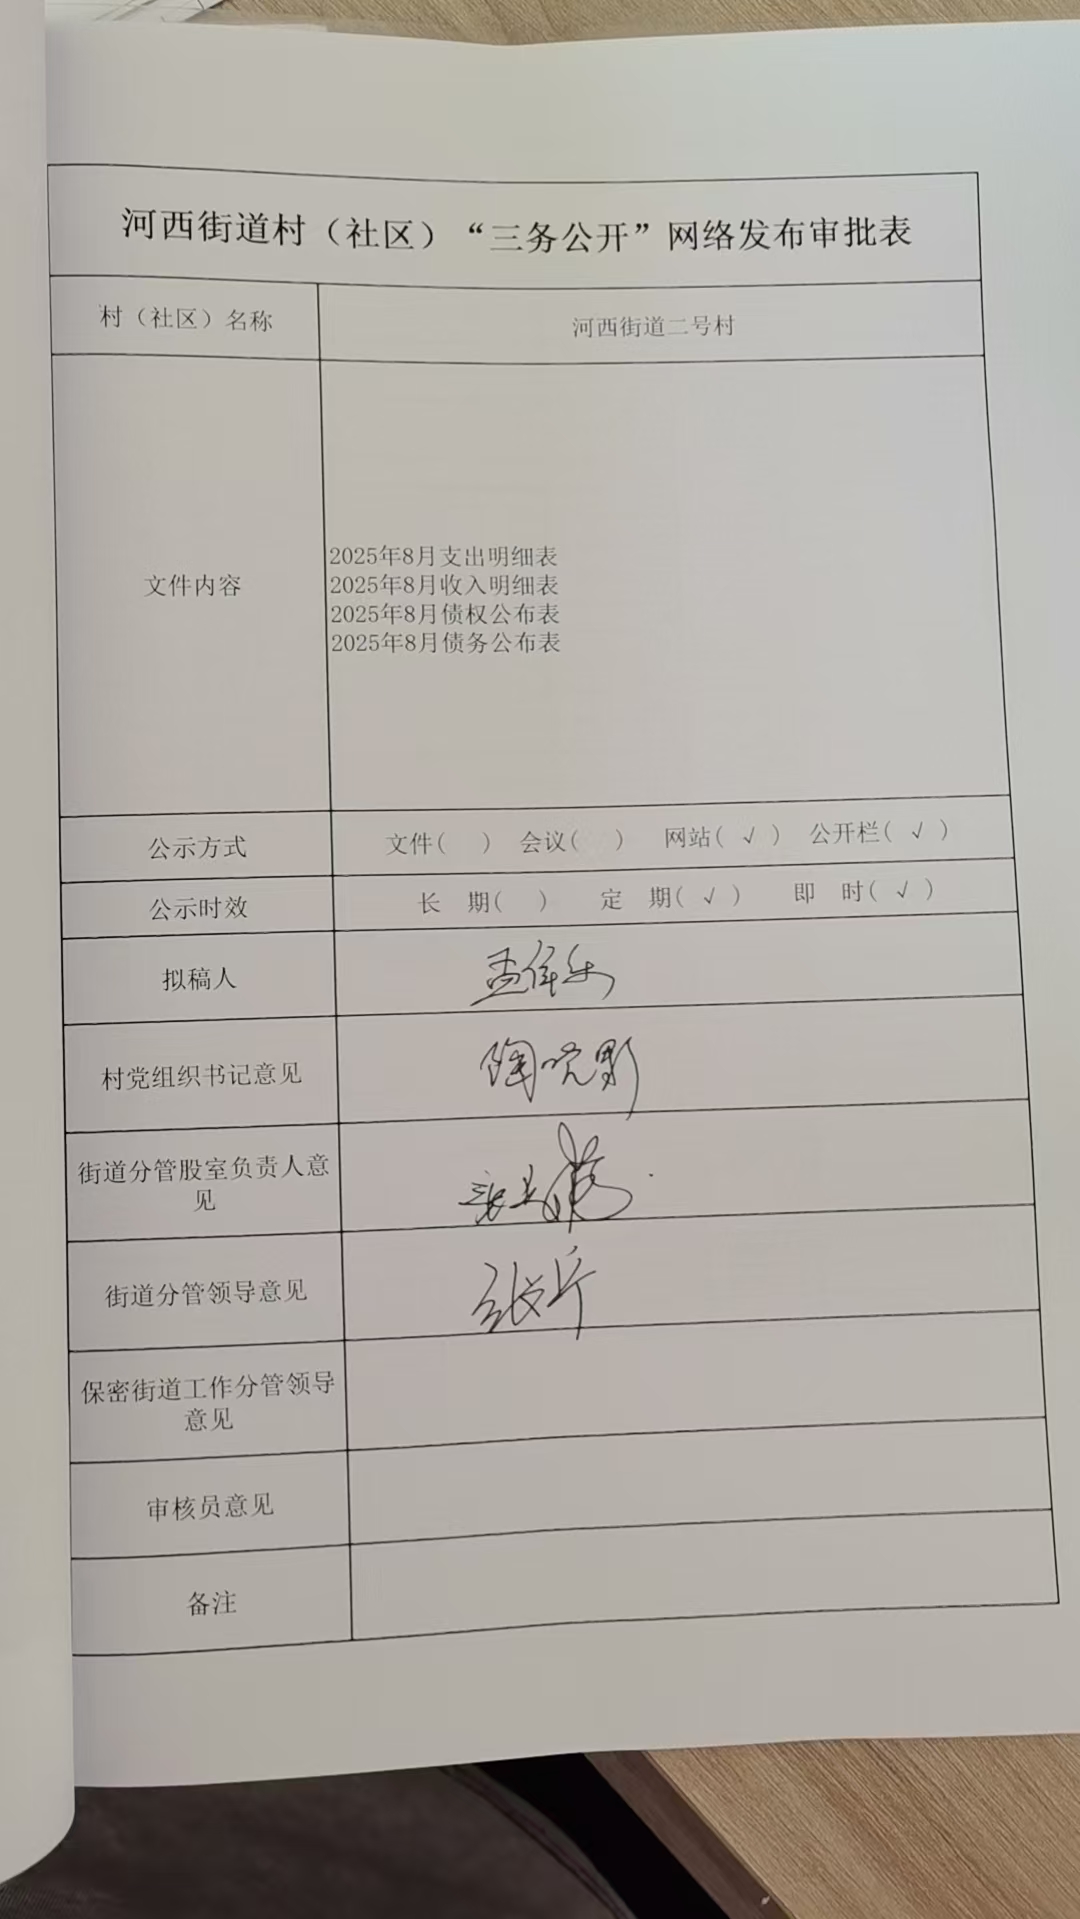 河西街道村（社区）“三务公开”网络发布审批表
村（社区）名称
河西街道二号村
文件内容
2025年8月支出明细表
2025年8月收入明细表
2025年8月债权公布表
2025年8月债务公布表
公示方式
文件( ) 会议( ) 网站( √ ) 公开栏( √ )
公示时效
长 期( ) 定 期( √ ) 即 时( √ )
拟稿人
村党组织书记意见
陶晓影
街道分管股室负责人意
见
街道分管领导意见
保密街道工作分管领导
意见
审核员意见
备注